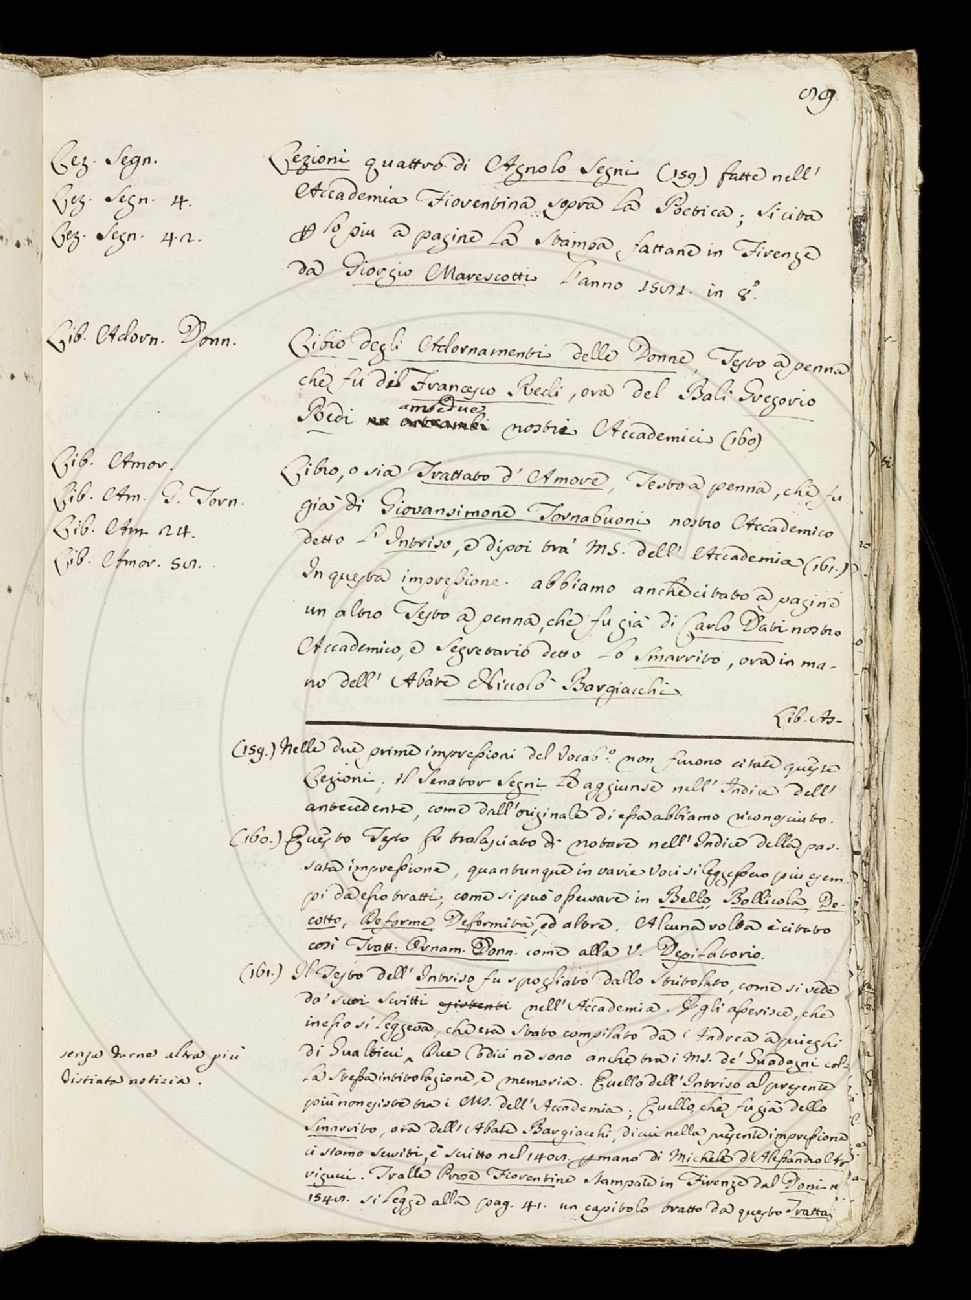 99
Lez. Segn.
Lez. Segn. 4.
Lez. Segn. 42.
Lezioni quattro di Agnolo Segni (159) fatte nell'
Accademia Fiorentina sopra la Poetica; si cita
lo più a pagine la stampa fattane in Firenze
da Giorgio Marescotti l'anno 1581. in 8.°
Lib. Adorn. Donn.
Libro degli Adornamenti delle Donne, Testo a penna
che fu del Francesco Redi, ora del Balì Gregorio
ambedue
Redi nostri Accademici (160)
Lib. Amor.
Lib. Am. G. Torn.
Lib. Am. 24.
Lib. Amor. 58.
Libro, o sia Trattato d'Amore, Testo a penna, che fu
già di Giovansimone Tornabuoni nostro Accademico
detto l'Intriso, e dipoi tra' MS. dell'Accademia (161.)
In questa impressione abbiamo anche citato a pagine
un altro Testo a penna, che fu già di Carlo Dati nostro
Accademico, e Segretario detto lo Smarrito, ora in ma-
no dell'Abate Niccolò Bargiacchi.
Lib. As-
(159.) Nelle due prime impressioni del Vocab.° non furono citate queste
Lezioni; il Senator Segni le aggiunse nell'Indice dell'
antecedente, come dall'originale di essa abbiamo riconosciuto.
(160.) Questo Testo fu tralasciato di notare nell'Indice della pas-
sata impressione, quantunque in varie voci si leggessero più esem-
pi da esso tratti, come si può osservare in Bello, Bollicola, De-
cotto, Deforme, Deformità, ed altre. Alcuna volta è citato
così Tratt. Ornam. Donn. come alla V. Depilatorio.
(161.) Il Testo dell'Intriso fu spogliato dallo Stritolato, come si vede
da' suoi scritti esistenti nell'Accademia. Egli asserisce, che
in esso si leggeva, che era stato compilato da Andrea a prieghi
di Gualtieri ^ Due Codici ne sono anche tra i MS. de' Guadagni col-
la stessa intitolazione, e memoria. Quello dell'Intriso al presente
più non esiste tra i MS. dell'Accademia; Quello, che fu già dello
Smarrito, ora dell'Abate Bargiacchi, di cui nella presente impressione
ci siamo serviti, è scritto nel 1408. mano di Michele d'Alessandro Ar-
rigucci. Tralle Prose Fiorentine stampate in Firenze dal Doni n
1548. si legge alla pag. 41. un capitolo tratto da questo Tratta
senza darne altra più
distinta notizia.